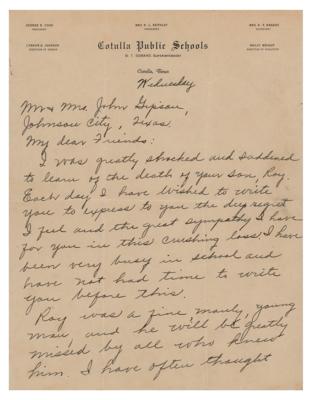 Cotulla Public Schools
Cotulla, Texas
Wednesday
Mr & Mrs. John Gipson,
Johnson City, Texas.
My dear Friends:
I was greatly shocked and saddened
to learn of the death of your son, Roy.
Each day I have wished to write
you to express to you the deep regret
I feel and the great sympathy I have
for you in this crushing loss. I have
been very busy in school and
have not had time to write
you before this.
Roy was a fine, manly, young
man, and he will be greatly
missed by all who knew
him. I have often thought